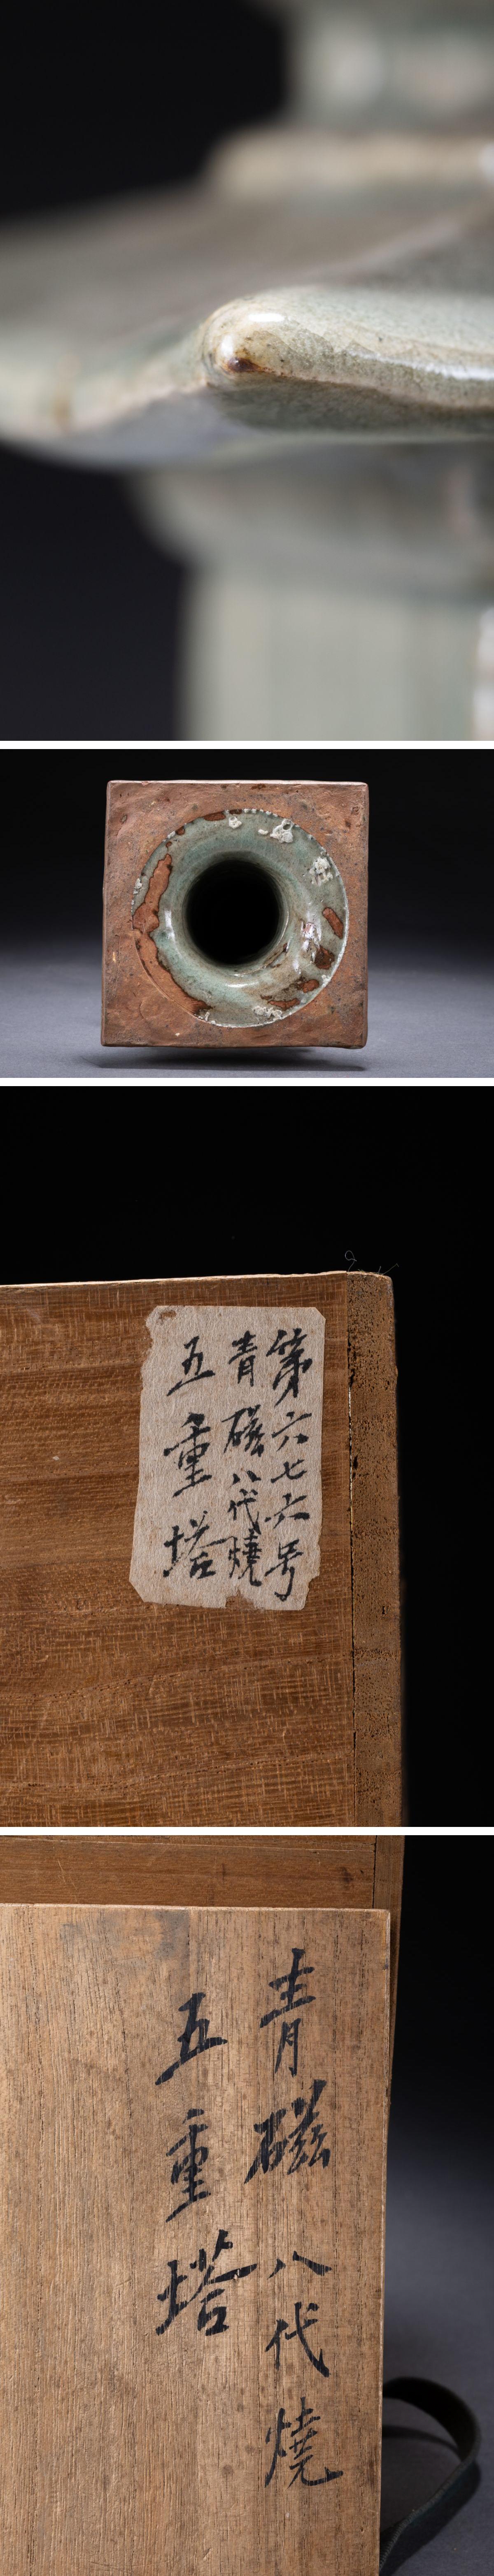 第六七六号
青磁八代燒
五重塔
青磁八代燒
五重塔